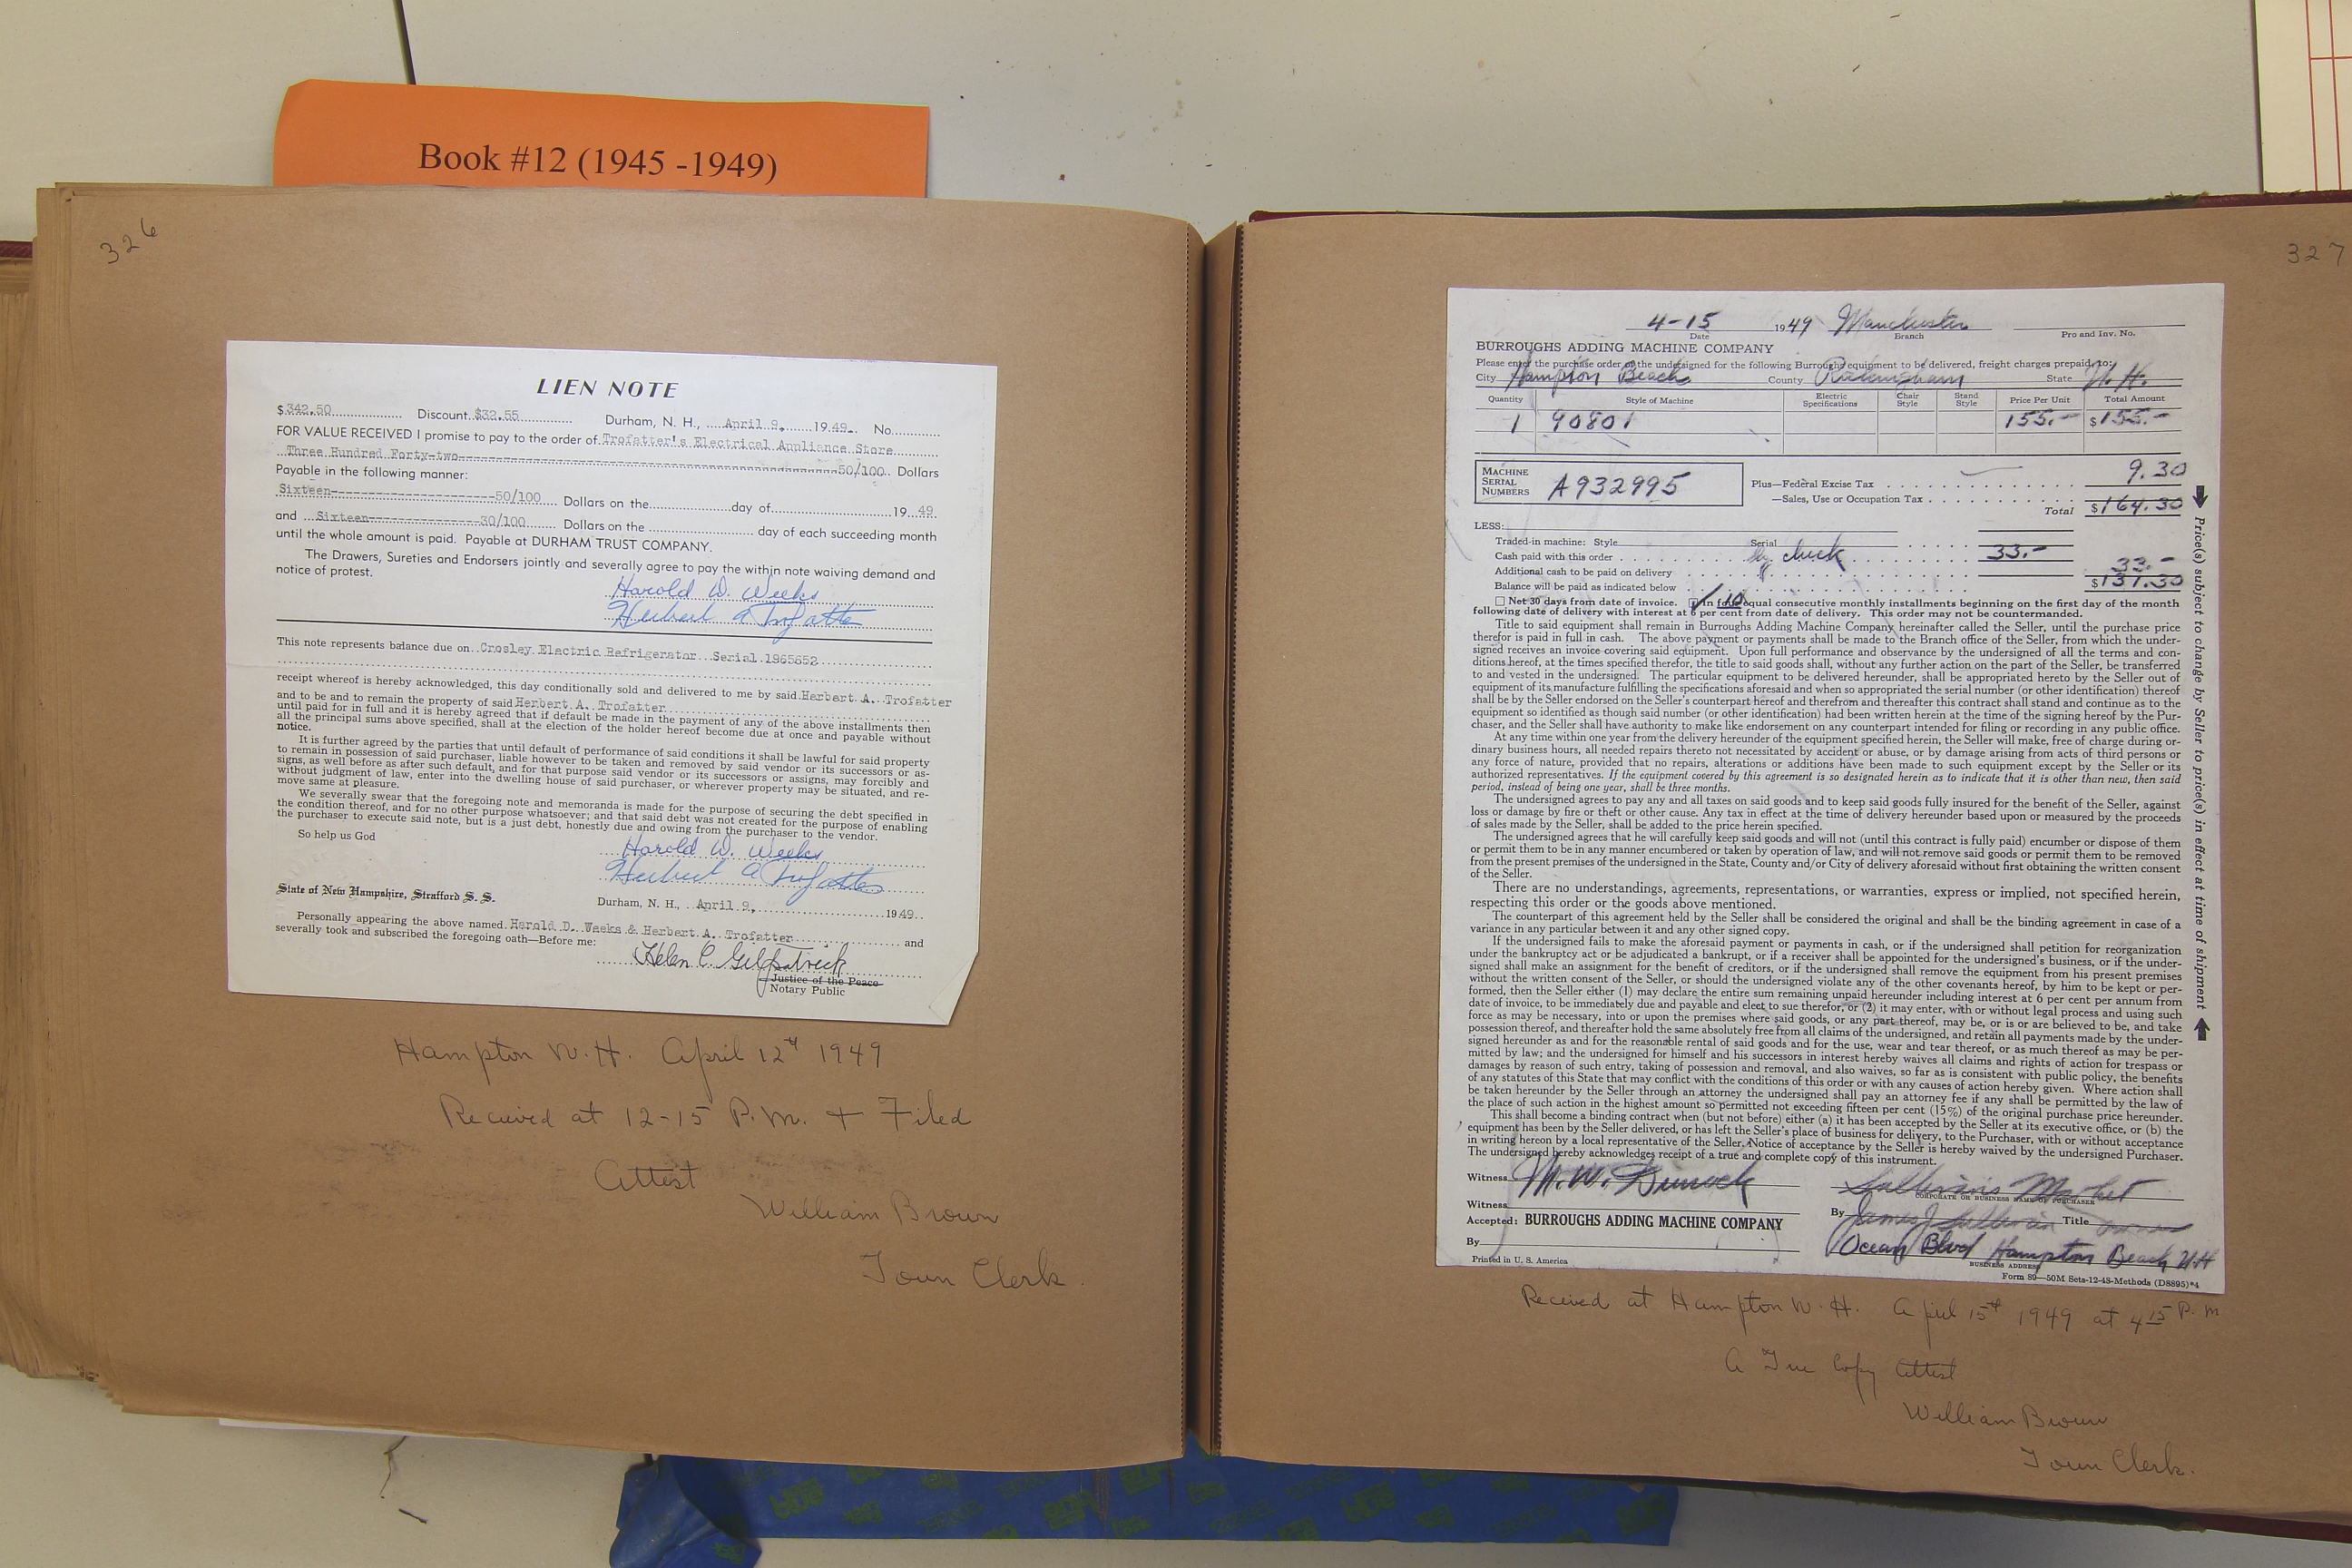 Book #12 (1945 -1949)
326
LIEN NOTE
$ 342.50 Discount $32.55 Durham, N. H., April 9, 19 49 No.
FOR VALUE RECEIVED I promise to pay to the order of Trofatter's Electrical Appliance Store
Three Hundred Forty-two----------50/100 Dollars
Payable in the following manner:
Sixteen----------50/100 Dollars on the day of 19 49
and Sixteen----------30/100 Dollars on the day of each succeeding month
until the whole amount is paid. Payable at DURHAM TRUST COMPANY.
The Drawers, Sureties and Endorsers jointly and severally agree to pay the within note waiving demand and
notice of protest.
Harold W. Weeks
Herbert A Trofatter
This note represents balance due on Crosley Electric Refrigerator Serial 1965652
receipt whereof is hereby acknowledged, this day conditionally sold and delivered to me by said Herbert A. Trofatter
and to be and to remain the property of said Herbert A. Trofatter
until paid for in full and it is hereby agreed that if default be made in the payment of any of the above installments then
all the principal sums above specified, shall at the election of the holder hereof become due at once and payable without
notice.
It is further agreed by the parties that until default of performance of said conditions it shall be lawful for said property
to remain in possession of said purchaser, liable however to be taken and removed by said vendor or its successors or as-
signs, as well before as after such default, and for that purpose said vendor or its successors or assigns, may forcibly and
without judgment of law, enter into the dwelling house of said purchaser, or wherever property may be situated, and re-
move same at pleasure.
We severally swear that the foregoing note and memoranda is made for the purpose of securing the debt specified in
the condition thereof, and for no other purpose whatsoever; and that said debt was not created for the purpose of enabling
the purchaser to execute said note, but is a just debt, honestly due and owing from the purchaser to the vendor.
So help us God
Harold W. Weeks
Herbert A Trofatter
State of New Hampshire, Strafford S. S.
Durham, N. H., April 9, 19 49
Personally appearing the above named Harold D. Weeks & Herbert A. Trofatter and
severally took and subscribed the foregoing oath—Before me:
Helen C. Gilpatrick
Justice of the Peace
Notary Public
Hampton N. H. April 12th 1949
Received at 12-15 P. M. + Filed
Attest
William Brown
Town Clerk.
327
4-15 19 49 Manchester
Date Branch Pro and Inv. No.
BURROUGHS ADDING MACHINE COMPANY
Please enter the purchase order of the undersigned for the following Burroughs equipment to be delivered, freight charges prepaid, to:
City Hampton Beach County Rockingham State N. H.
Quantity Style of Machine Electric Specifications Chair Style Stand Style Price Per Unit Total Amount
1 90801 155.- $155.-
MACHINE SERIAL NUMBERS A932995
Plus—Federal Excise Tax 9.30
—Sales, Use or Occupation Tax
Total $164.30
LESS:
Traded-in machine: Style Serial
Cash paid with this order by check 33.-
Additional cash to be paid on delivery 33.-
Balance will be paid as indicated below $131.30
Net 30 days from date of invoice. In 10 equal consecutive monthly installments beginning on the first day of the month
following date of delivery with interest at 6 per cent from date of delivery. This order may not be countermanded.
Title to said equipment shall remain in Burroughs Adding Machine Company hereinafter called the Seller, until the purchase price
therefor is paid in full in cash. The above payment or payments shall be made to the Branch office of the Seller, from which the under-
signed receives an invoice covering said equipment. Upon full performance and observance by the undersigned of all the terms and con-
ditions hereof, at the times specified therefor, the title to said goods shall, without any further action on the part of the Seller, be transferred
to and vested in the undersigned. The particular equipment to be delivered hereunder, shall be appropriated hereto by the Seller out of
equipment of its manufacture fulfilling the specifications aforesaid and when so appropriated the serial number (or other identification) thereof
shall be by the Seller endorsed on the Seller's counterpart hereof and therefrom and thereafter this contract shall stand and continue as to the
equipment so identified as though said number (or other identification) had been written herein at the time of the signing hereof by the Pur-
chaser, and the Seller shall have authority to make like endorsement on any counterpart intended for filing or recording in any public office.
At any time within one year from the delivery hereunder of the equipment specified herein, the Seller will make, free of charge during or-
dinary business hours, all needed repairs thereto not necessitated by accident or abuse, or by damage arising from acts of third persons or
any force of nature, provided that no repairs, alterations or additions have been made to such equipment except by the Seller or its
authorized representatives. If the equipment covered by this agreement is so designated herein as to indicate that it is other than new, then said
period, instead of being one year, shall be three months.
The undersigned agrees to pay any and all taxes on said goods and to keep said goods fully insured for the benefit of the Seller, against
loss or damage by fire or theft or other cause. Any tax in effect at the time of delivery hereunder based upon or measured by the proceeds
of sales made by the Seller, shall be added to the price herein specified.
The undersigned agrees that he will carefully keep said goods and will not (until this contract is fully paid) encumber or dispose of them
or permit them to be in any manner encumbered or taken by operation of law, and will not remove said goods or permit them to be removed
from the present premises of the undersigned in the State, County and/or City of delivery aforesaid without first obtaining the written consent
of the Seller.
There are no understandings, agreements, representations, or warranties, express or implied, not specified herein,
respecting this order or the goods above mentioned.
The counterpart of this agreement held by the Seller shall be considered the original and shall be the binding agreement in case of a
variance in any particular between it and any other signed copy.
If the undersigned fails to make the aforesaid payment or payments in cash, or if the undersigned shall petition for reorganization
under the bankruptcy act or be adjudicated a bankrupt, or if a receiver shall be appointed for the undersigned's business, or if the under-
signed shall make an assignment for the benefit of creditors, or if the undersigned shall remove the equipment from his present premises
without the written consent of the Seller, or should the undersigned violate any of the other covenants hereof, by him to be kept or per-
formed, then the Seller either (1) may declare the entire sum remaining unpaid hereunder including interest at 6 per cent per annum from
date of invoice, to be immediately due and payable and elect to sue therefor, or (2) it may enter, with or without legal process and using such
force as may be necessary, into or upon the premises where said goods, or any part thereof, may be, or is or are believed to be, and take
possession thereof, and thereafter hold the same absolutely free from all claims of the undersigned, and retain all payments made by the under-
signed hereunder as and for the reasonable rental of said goods and for the use, wear and tear thereof, or as much thereof as may be per-
mitted by law; and the undersigned for himself and his successors in interest hereby waives all claims and rights of action for trespass or
damages by reason of such entry, taking of possession and removal, and also waives, so far as is consistent with public policy, the benefits
of any statutes of this State that may conflict with the conditions of this order or with any causes of action hereby given. Where action shall
be taken hereunder by the Seller through an attorney the undersigned shall pay an attorney fee if any shall be permitted by the law of
the place of such action in the highest amount so permitted not exceeding fifteen per cent (15%) of the original purchase price hereunder.
This shall become a binding contract when (but not before) either (a) it has been accepted by the Seller at its executive office, or (b) the
equipment has been by the Seller delivered, or has left the Seller's place of business for delivery, to the Purchaser, with or without acceptance
in writing hereon by a local representative of the Seller. Notice of acceptance by the Seller is hereby waived by the undersigned Purchaser.
The undersigned hereby acknowledges receipt of a true and complete copy of this instrument.
Price(s) subject to change by Seller to price(s) in effect at time of shipment
Witness M. W. Dimock Sullivan's Market
CORPORATE OR BUSINESS NAME OF PURCHASER
Witness By James J Sullivan Title owner
Accepted: BURROUGHS ADDING MACHINE COMPANY
Ocean Blvd Hampton Beach N.H
By BUSINESS ADDRESS
Printed in U. S. America Form 89—50M Sets-12-48-Methods (D8895)*4
Received at Hampton N. H. April 15th 1949 at 4 15 P. M
A True Copy Attest
William Brown
Town Clerk.